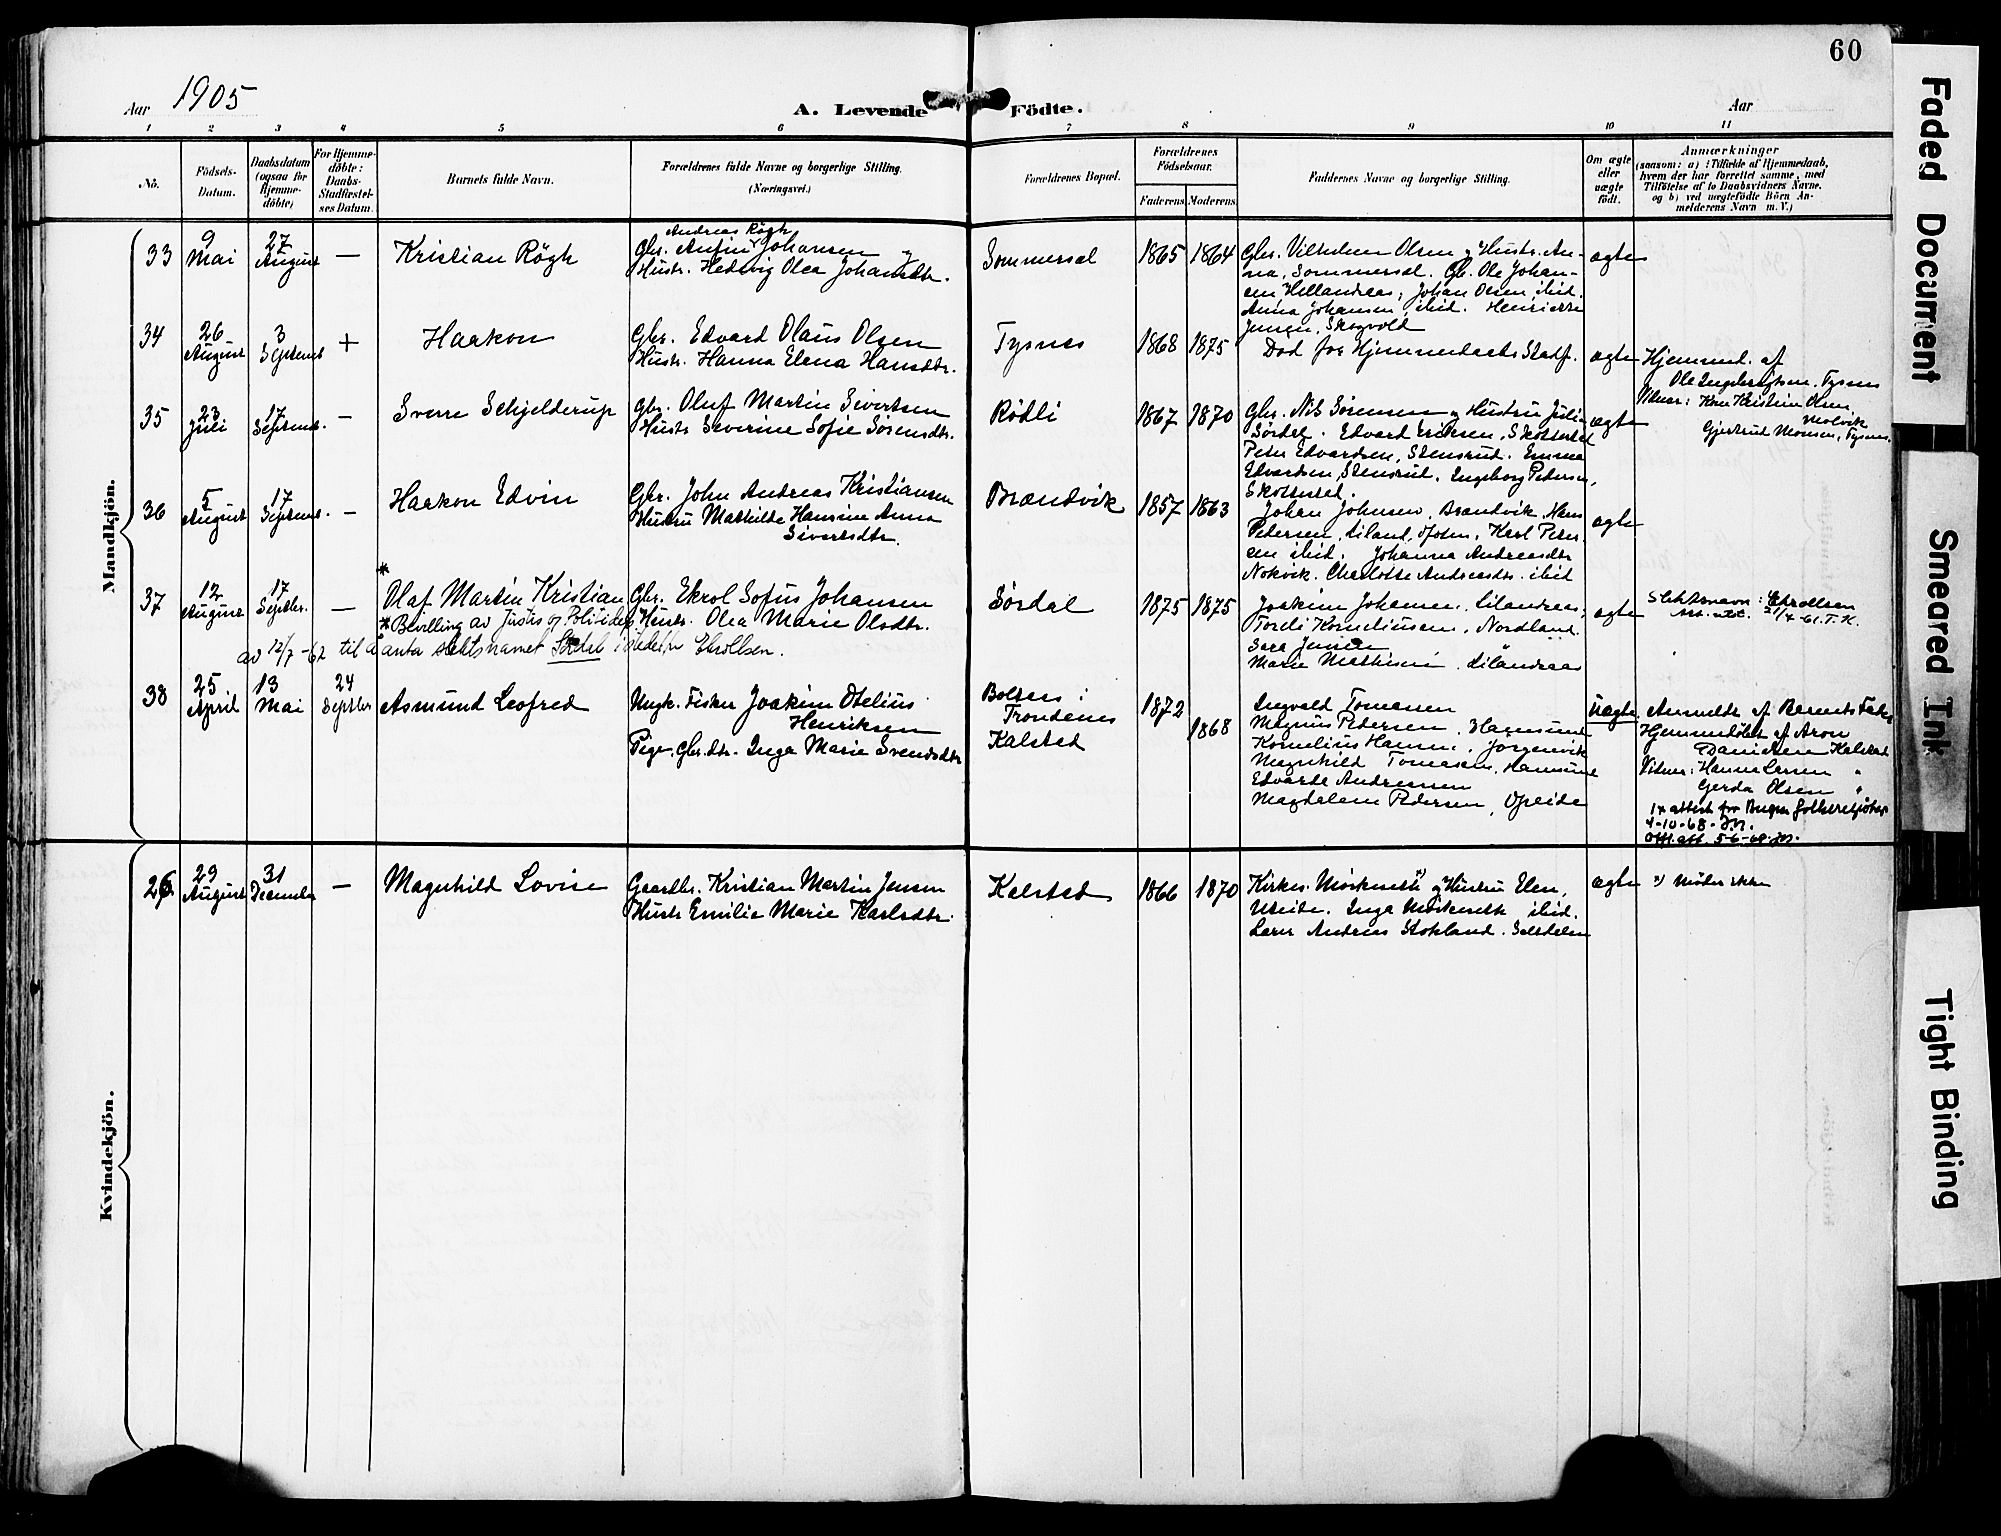 60
Aar 1905
A. Levende Födte.
Aar
1 2 3 4 5 6 7 8 9 10 11
No.
Födsels-
Datum.
Daabsdatum
(ogsaa for
Hjemme-
döbte)
For Hjemme-
döbte:
Daabs-
Stadfæstel-
ses Datum.
Barnets fulde Navn.
Forældrenes fulde Navne og borgerlige Stilling.
(Næringsvei.)
Forældrenes Bopæl.
Forældrenes
Födselsaar.
Faderens
Moderens
Faddernes Navne og borgerlige Stilling.
Om ægte
eller
uægte
født.
Anmærkninger
(saasom: a) i Tilfælde af Hjemmedaab,
hvem der har forrettet samme, med
Tilföielse af to Daabsvidners Navne,
og b) ved uægtefödte Börn An-
melderens Navn m. V.)
Mandkjön.
33
9
Mai
27
August
—
Kristian Rögh
Andreas Rögh
Gbr. Johansen og
Hustr. Hedvig Olea Johansdtr.
Sommersel
1865 1864
Gbr. Vilhelm Olsen og Hustr. An-
na, Sommersel. Gb. Ole Johan-
sen Hellandsæs, Johan Olsen, ibid.
Anna Johansen, ibid. Henriette
Jensen, Skogvold
ægte
34
26
August
3
Septemb
+
Haakon
Gbr. Edvard Olaus Olsen
Hustr. Hanna Elena Hansdtr.
Tysnes
1868 1875
Død før Hjemmedaabs Stadf.
ægte
Hjemmed. af
Ole Ingebrigtsen, Tysnes
Kristine Olsen
Molvik
Gjertrud Monsen, Tysnes.
35
23
Juli
17
Septemb.
—
Sverre Schjelderup
Gbr. Oluf Martin Sivertsen
Hustr Severine Sofie Sörensdtr.
Rödli
1867 1870
Gbr. Nils Sörensen og Hustru Juli
Sördal. Edvard Eriksen, Skottestad
Peter Edvardsen, Stensrud. Emma
Edvardsen, Stensrud, Ingeborg Pedersen,
Skottestad.
ægte
36
5
August
17
Septemb.
—
Haakon Edvin
Gbr. John Andreas Kristiansen
Hustru Mathilde Hansine Anna
Sivertsdtr.
Brændvik
1857 1863
Johan Johnsen, Brændvik, Hans
Pedersen, Karl Peter
sen ibid. Johanna Andreasdtr
Nokvik. Charlotte Andreasdtr. ibid
ægte
37
12
August
17
Septbr.
—
*
Olaf Martin Kristian
Gbr. Ekrol Sofus Johansen
Hustr. Olea Marie Olsdtr.
* Bevilling av Justis og Politidep
av 12/7 -62 til å anta slektsnamet
Sördal
1875 1875
Joakim Johansen,
Torali Korneliussen, Nordland.
Sara Jensen
Marie Mathisen,
ægte
Slektsnavn: Ekrollsen
21/4-61. T. K.
38
25
April
13
Mai
24
Septbr
Asmund Leofred
Ungk. Fisker Joakim Otelius
Henriksen
Pige, Gbr.dtr. Inga Marie Svendsdtr
Trondenes
Kalsted
1872
1868
Ingvald Tomasen
Magnus Pedersen, Hamsund
Kornelius Hansen, Jorgenvik
Magnhild Tomasen, Hamsund
Edvarda Andreassen
Magdalena Pedersen, Opeide
Uægte
Anmeldt af Barnets Fader
Hjemmedöbt af Aron
Danielsen Kalstad
Vidner: Hanna Larsen "
Gerda Olsen "
4-10-68-
Kvindekjön.
26
29
August
31
December
—
Magnhild Lovise
Gaardbr. Kristian Martin Jensen
Hustr Emilie Marie Karlsdtr.
Kalsted
1866 1870
Kirkes. Mörkeseth og Hustru Elen,
Inga Mörkeseth ibid.
Lærer Andreas Stokland.
ægte
Möder ikke
Faded Document
Smeared Ink
Tight Binding